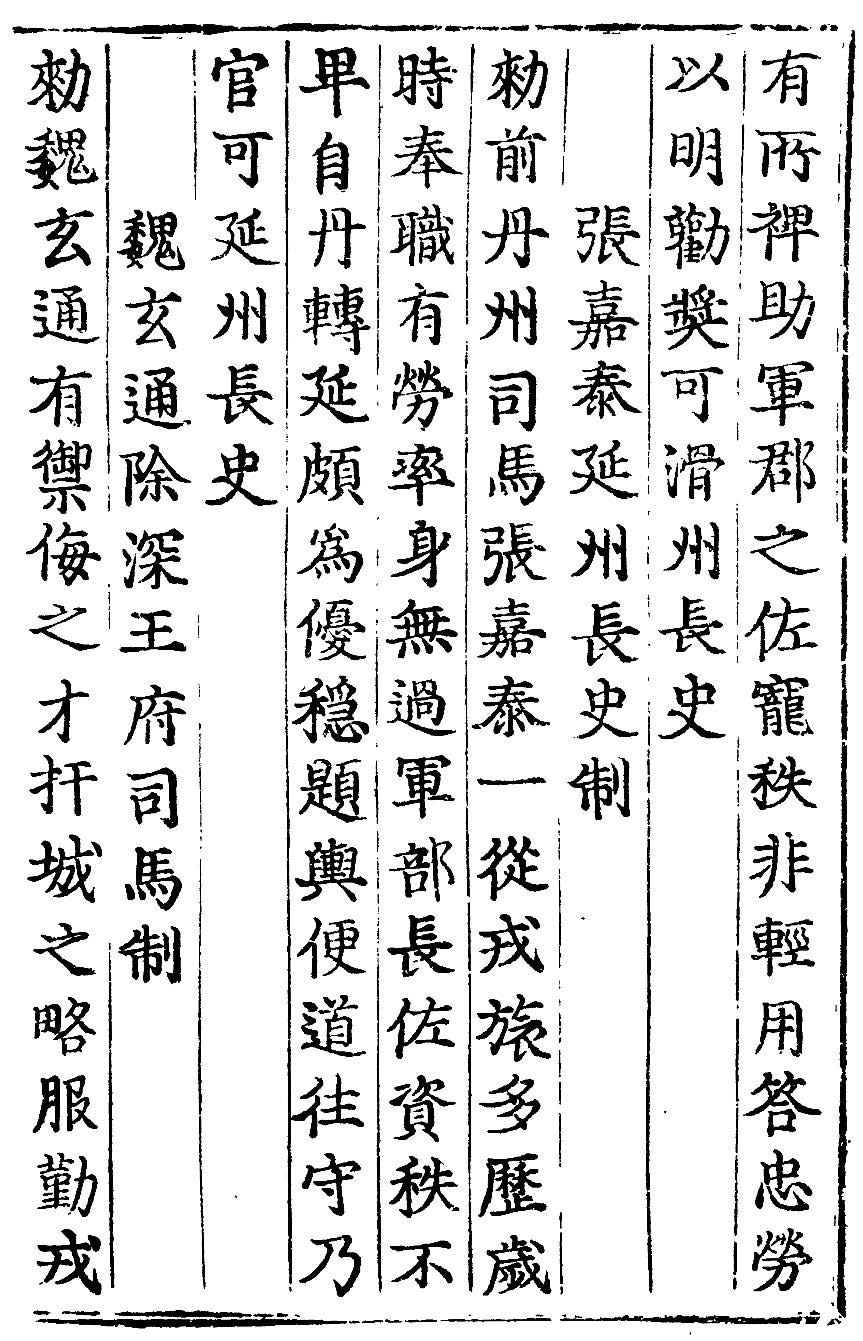 有所裨助軍郡之佐寵秩非輕用答忠勞
以明勸奬可滑州長史
張嘉泰延州長史制
勑前丹州司馬張嘉泰一從戎旅多歷歲
時奉職有勞率身無過軍部長佐資秩不
卑自丹轉延頗爲優穩題輿便道往守乃
官可延州長史
魏玄通除深王府司馬制
勑魏玄通有禦侮之才扞城之略服勤戎